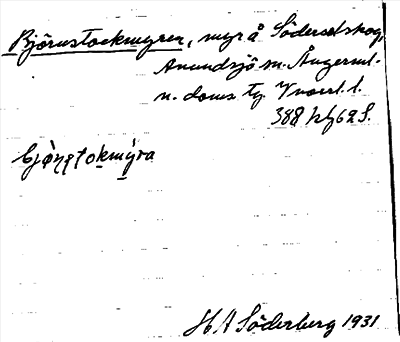 Björnstockmyren, myr å Söderselskog,
Anundsjö sn. Ångerml.
n. doms. tg. Vnorrl. l.
388 kbl 62 S.
bjø̀ṇṣtokmȳra
H A Söderberg 1931